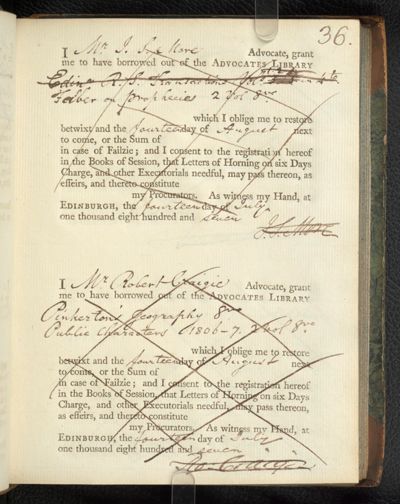 36.
I Mr. J. S. More Advocate, grant
me to have borrowed out of the ADVOCATES LIBRARY
Edinr. R. S. Transactions 4to
Faber on Prophecies 2 vol 8vo
which I oblige me to restore
betwixt and the fourteen day of August next
to come, or the Sum of
in case of Failzie; and I consent to the registration hereof
in the Books of Session, that Letters of Horning on six Days
Charge, and other Executorials needful, may pass thereon, as
effeirs, and thereto constitute
my Procurators. As witness my Hand, at
EDINBURGH, the fourteen day of July
one thousand eight hundred and seven
J. S. More
I Mr. Robert Craigie Advocate, grant
me to have borrowed out of the ADVOCATES LIBRARY
Pinkerton's Geography 8vo
Public Characters 1806-7. 2 vol 8vo
which I oblige me to restore
betwixt and the fourteen day of August next
to come, or the Sum of
in case of Failzie; and I consent to the registration hereof
in the Books of Session, that Letters of Horning on six Days
Charge, and other Executorials needful, may pass thereon,
as effeirs, and thereto constitute
my Procurators. As witness my Hand, at
EDINBURGH, the fourteen day of July
one thousand eight hundred and seven
Ro. Craigie